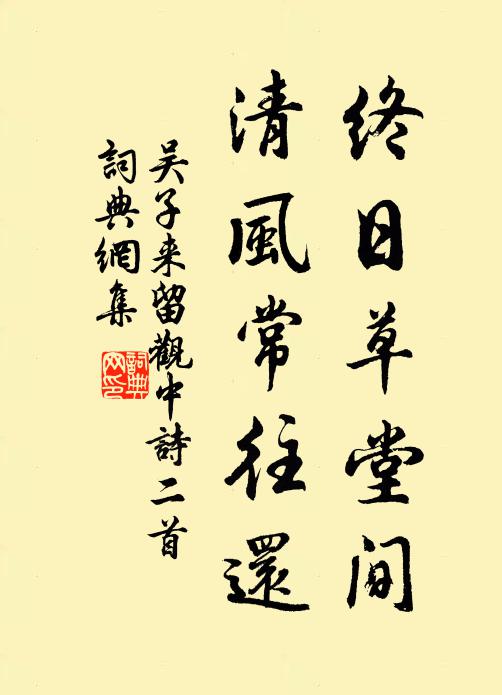 終日草堂間
清風常往還
吴子来留觀中詩二首
詞典網集
詞典网印